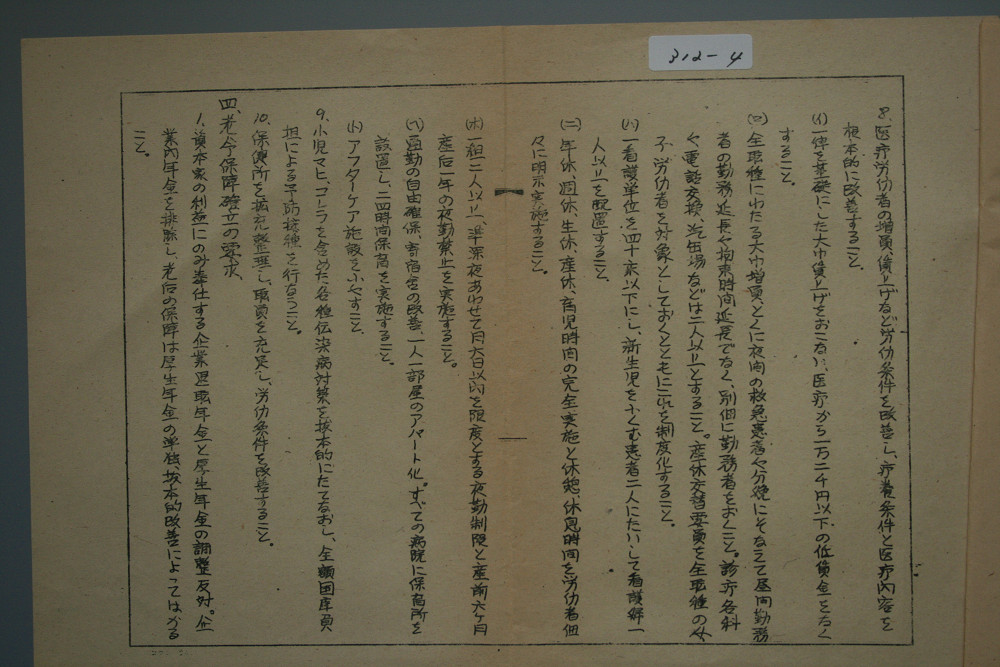 312-4
8. 医疗労仂者の増員、賃上げなど労仂条件を改善し、疗養条件と医疗内容を
根本的に改善すること。
(イ) 一律を基礎にした大巾賃上げをおこない、医疗から一万二千円以下の低賃金をなく
すること。
(ロ) 全职種にわたる大巾増員、とくに夜间の救急患者や分娩にそなえて昼间勤務
者の勤務延長や拘束時间延長でなく、別個に勤務者をおくこと。診疗各科
や、電話交換、汽缶場などは二人以上とすること。産休交替要員を全职種の女
子労仂者を対象としておくとともにこれを制度化すること。
(ハ) 一看護単位を四十床以下にし、新生児をふくむ患者二人にたいして看護婦一
人以上を配置すること。
(ニ) 年休、週休、生休、産休、育児時间の完全実施と休憩、休息時间を労仂者個
々に明示実施すること。
(ホ) 一組二人以上、準深夜あわせて月六日以内を限度とする夜勤制限と産前六ケ月
産后一年の夜勤禁止を実施すること。
(ヘ) 通勤の自由確保、寄宿舎の改善、一人一部屋のアパート化。すべての病院に保育所を
設置し二四時间保育を実施すること。
(ト) アフターケア施設をふやすこと。
9. 小児マヒ、コレラを含めた各種伝染病対策を抜本的にたてなおし、全額国庫負
担による予防接種を行なうこと。
10. 保健所を拡充整理し、職員を充足し、労仂条件を改善すること。
四、老令保障確立の要求
1. 資本家の利益にのみ奉仕する企業退職年金と厚生年金の調整反対。企
業内年金を排除し、老后の保障は厚生年金の単独、抜本的改善によってはかる
こと。